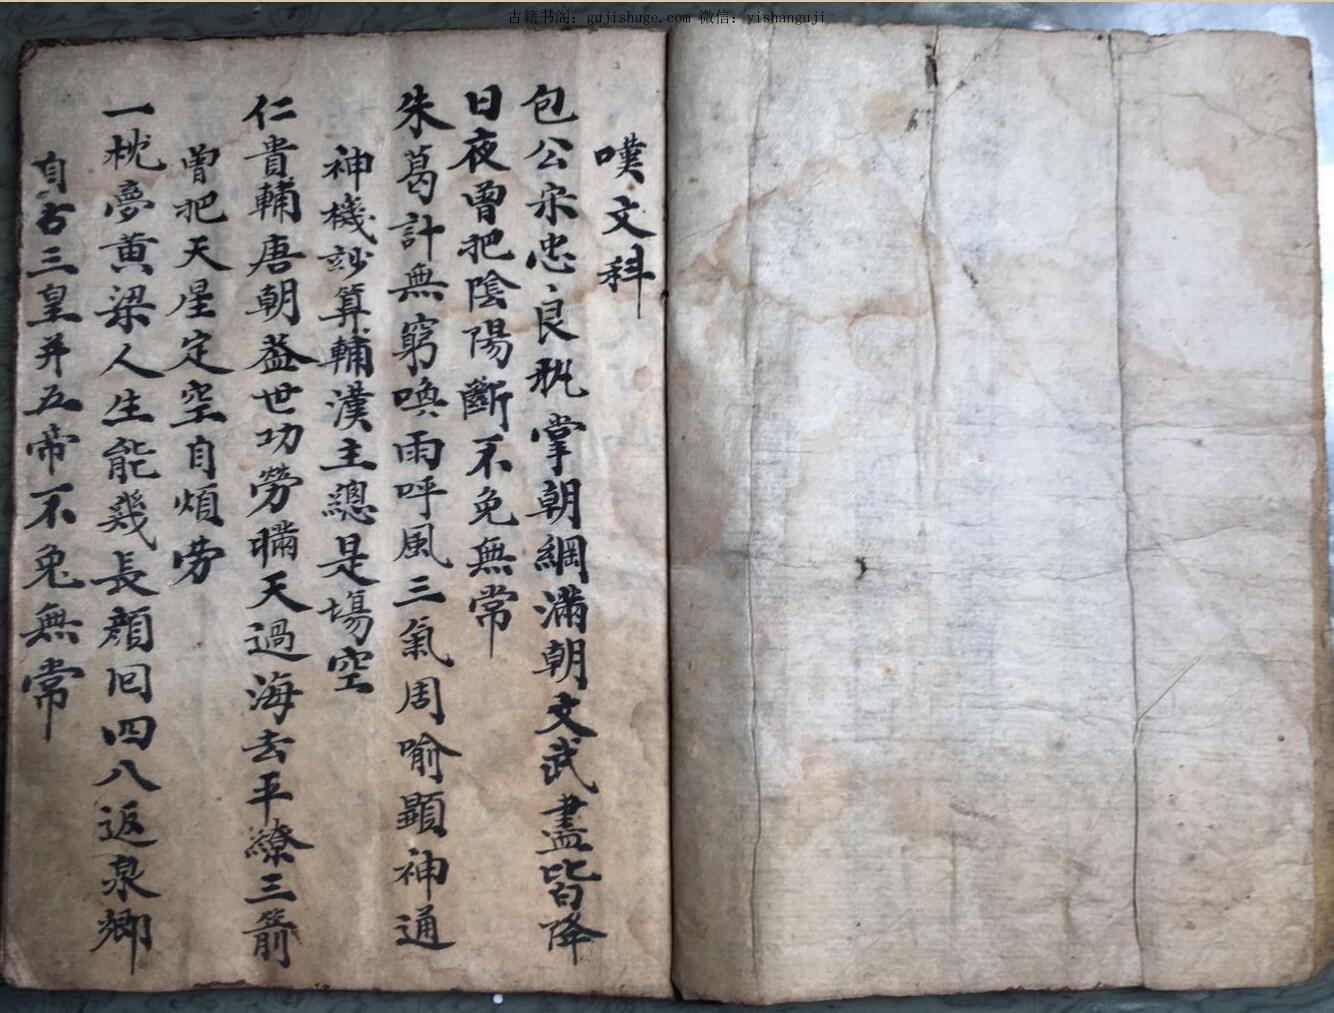 古籍书阁：gujishuge.com 微信：yishanguji
嘆文科
包公宋忠良執掌朝綱滿朝文武盡皆降
日夜曾把陰陽斷不免無常
朱葛計無窮喚雨呼風三氣周喻顯神通
神機妙算輔漢主總是塲空
仁貴輔唐朝蓋世功勞瞞天過海去平繚三箭
曾把天星定空自煩劳
一枕夢黄梁人生能幾長顏回四八返泉鄉
自古三皇并五帝不免無常